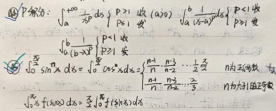 P积分: ∫_a^{+∞} 1/x^p dx { p>1 收 p≤1 发 (a>0) ∫_a^b 1/(x-a)^p dx { p<1 收 p≥1 发
∫_a^b 1/(b-x)^p { p<1 收 p≥1 发
∫_0^{π/2} sin^n x dx = ∫_0^{π/2} cos^n x dx = { n-1/n · n-3/n-2 ··· 1/2 · π/2 n为正偶数
n-1/n · n-3/n-2 ··· 2/3 n为大于1的正奇数
∫_0^π x f(sinx) dx = π/2 ∫_0^π f(sinx) dx